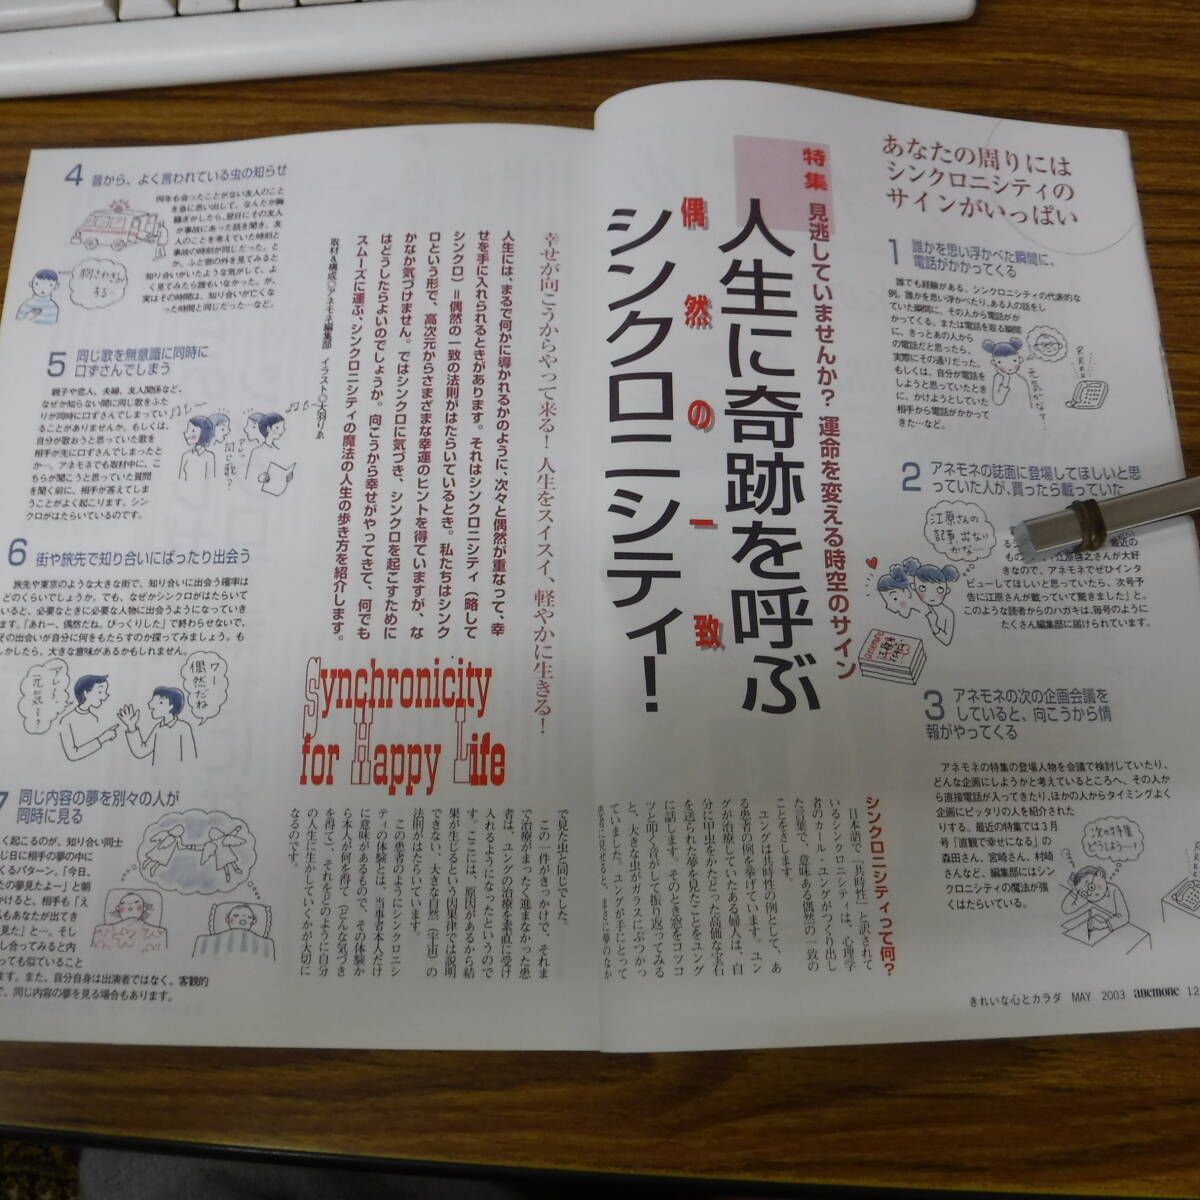 あなたの周りには
シンクロニシティの
サインがいっぱい
1 誰かを思い浮かべた瞬間に、
電話がかかってくる
誰でも経験がある、シンクロニシティの代表的な
例。誰かを思い浮かべたり、ある人の話をし
ていた瞬間に、その人から電話がか
かってくる。または電話を取る瞬間
に、きっとあの人から
の電話だと思ったら、
実際にその通りだった。
もしくは、自分が電話を
しようと思っていたとき
に、かけようとしていた
相手から電話がかかって
きた…など。
RRRR
元気かな?
2 アネモネの誌面に登場してほしいと思
っていた人が、買ったら載っていた
江原さんの
記事、出ない
かな〜
最近の
江原啓之さんが大好
きなので、アネモネでぜひインタ
ビューしてほしいと思っていたら、次号予
告に江原さんが載っていて驚きました」と。
このような読者からのハガキは、毎号のように
たくさん編集部に届けられています。
3 アネモネの次の企画会議を
していると、向こうから情
報がやってくる
アネモネの特集の登場人物を会議で検討していたり、
どんな企画にしようかと考えているところへ、その人か
ら直接電話が入ってきたり、ほかの人からタイミングよく
企画にピッタリの人を紹介された
りする。最近の特集では3月
号「直観で幸せになる」の
森田さん、宮崎さん、村崎
さんなど、編集部にはシン
クロニシティの魔法が強
くはたらいている。
次の特集
どうしよう…!
きれいな心とカラダ MAY 2003 anemone 12
特集 見逃していませんか? 運命を変える時空のサイン
人生に奇跡を呼ぶ
偶然の一致
シンクロニシティ!
シンクロニシティって何?
日本語で「共時性」と訳されて
いるシンクロニシティは、心理学
者のカール・ユングがつくり出し
た言葉で、意味ある偶然の一致の
ことをさします。
ユングは共時性の例として、あ
る患者の例を挙げています。ユン
グが治療していたある婦人は、自
分に甲虫をかたどった高価な宝石
を送られた夢を見たことをユング
に話します。そのとき窓をコツコ
ツと叩く音がして振り返ってみる
と、大きな虫がガラスにぶつかっ
ていました。ユングが手にとって
幸せが向こうからやって来る! 人生をスイスイ、軽やかに生きる!
人生には、まるで何かに導かれるかのように、次々と偶然が重なって、幸
せを手に入れられるときがあります。それはシンクロニシティ(略して
シンクロ)=偶然の一致の法則がはたらいているとき。私たちはシンク
ロという形で、高次元からさまざまな幸運のヒントを得ていますが、な
かなか気づけません。ではシンクロに気づき、シンクロを起こすために
はどうしたらよいのでしょうか。向こうから幸せがやってきて、何でも
スムーズに運ぶ、シンクロニシティの魔法の人生の歩き方を紹介します。
取材&構成○アネモネ編集部
Synchronicity
for Happy Life
で見た虫と同じでした。
この一件がきっかけで、それま
で治療がまったく進まなかった患
者は、ユングの治療を素直に受け
入れるようになったというので
す。ここには、原因があるから結
果が生じるという因果律では説明
できない、大きな自然(宇宙)の
法則がはたらいています。
この患者のようにシンクロニシ
ティの体験とは、当事者本人だけ
に意味があるもので、その体験か
ら本人が何を得て(どんな気づき
を得て)、それをどのように自分
の人生に生かしていくかが大切に
なるのです。
4 昔から、よく言われている虫の知らせ
何年も会ったことがない友人のこと
を急に思い出して、なんだか胸
騒ぎがしたら、翌日にその友人
が事故にあった話を聞き、友
人のことを考えていた時刻と
事故の時刻が同じだった。と
か、ふと窓の外を見てみると
知り合いがいたような気がして、よ
く見てみたら誰もいなかった。が、
実はその時間は、知り合いが亡くな
った時間と同じだった…など。
胸さわぎが
する…
5 同じ歌を無意識に同時に
口ずさんでしまう
親子や恋人、夫婦、友人関係など、
なぜか知らない間に同じ歌をふた
りが同時に口ずさんでしまってい
ることがありませんか。もしくは、
自分が歌おうと思っていた歌を
相手が先に口ずさんでしまったと
か…。アネモネでも取材中に、こ
ちらが聞こうと思っていた質問
を聞く前に、相手が答えてしま
うことがよく起こります。シン
クロがはたらいているのです。
アレッ
同じ歌?
6 街や旅先で知り合いにばったり出会う
旅先や東京のような大きな街で、知り合いに出会う確率は
どのくらいでしょうか。でも、なぜかシンクロがはたらいて
いると、必要なときに必要な人物に出会うようになっていき
ます。「あれー、偶然だね。びっくりした」で終わらせないで、
その出会いが自分に何をもたらすのか探ってみましょう。も
しかしたら、大きな意味があるかもしれません。
アレ〜、
元気〜?
ワー
偶然だね
7 同じ内容の夢を別々の人が
同時に見る
く起こるのが、知り合い同士
じ日に相手の夢の中に
くるパターン。「今日、
たの夢見たよー」と朝
かけると、相手も「え
もあなたが出てき
見た」と…。そし
し合ってみると内
っても似ていること
ます。また、自分自身は出演者ではなく、客観的
で、同じ内容の夢を見る場合もあります。